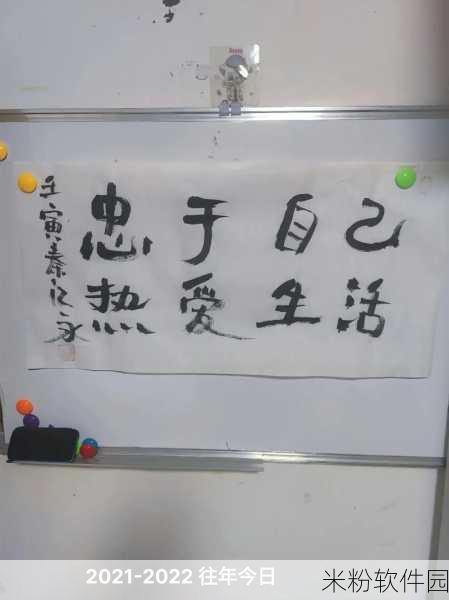 忠于自己
热爱生活
壬寅
2021-2022 往年今日
米粉软件园